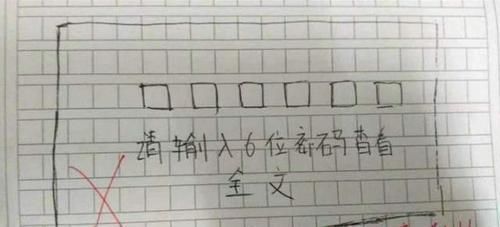 □ □ □ □ □ □
请输入6位密码查看
全文